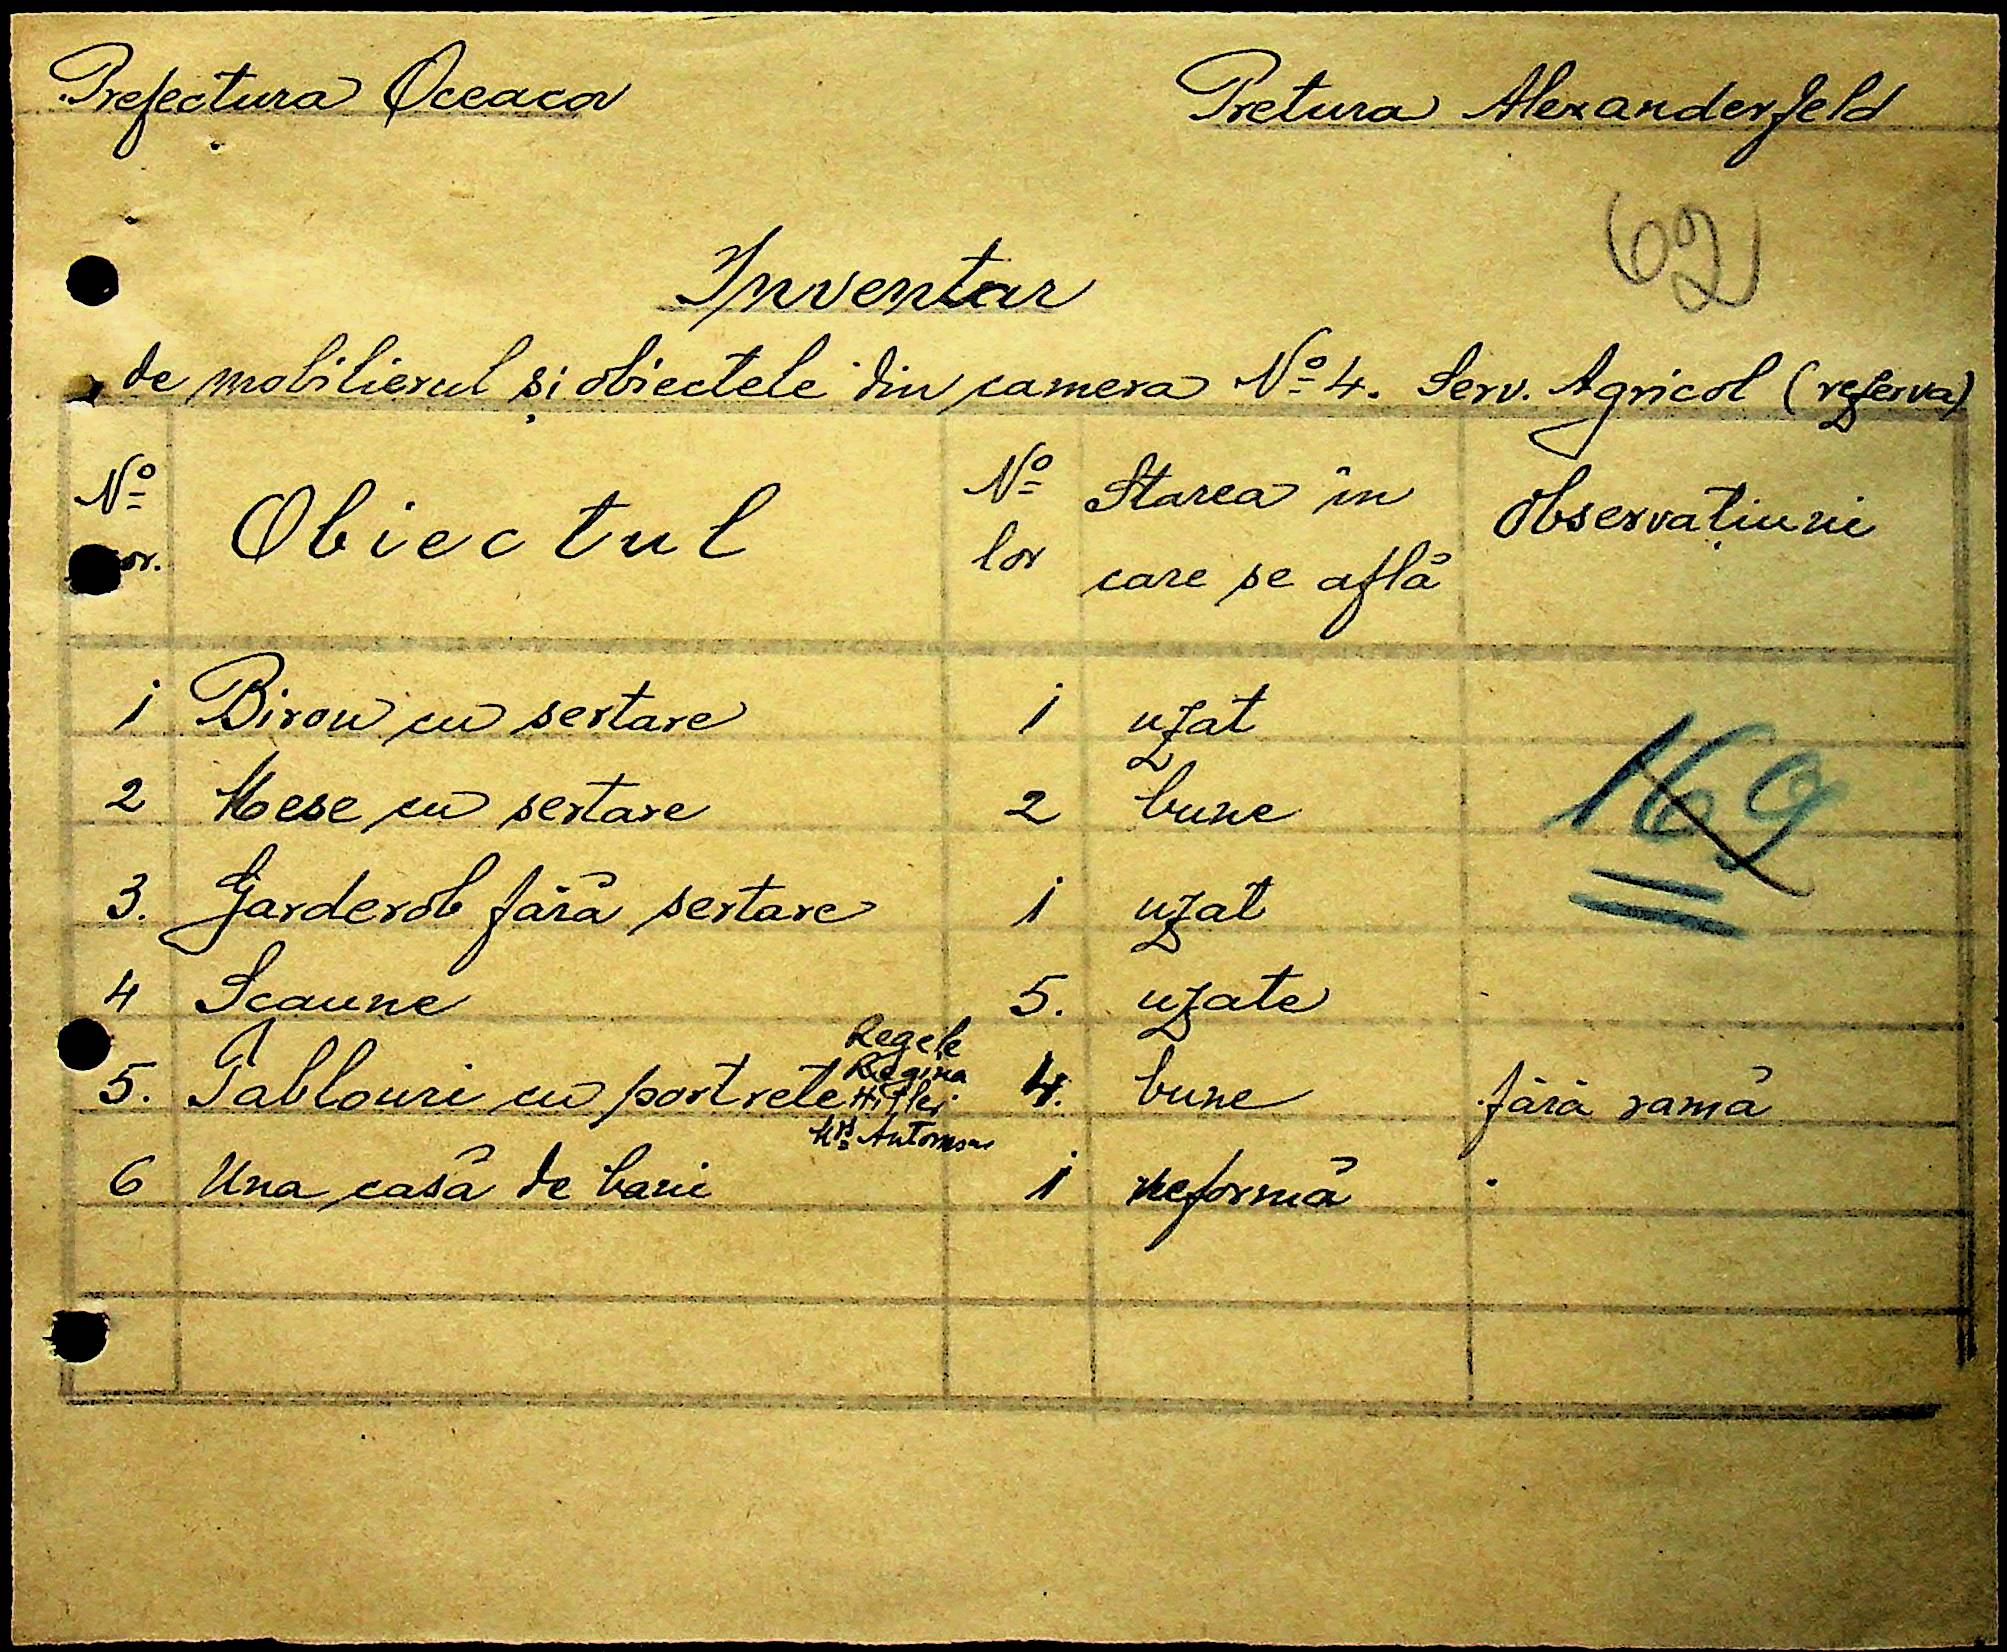 Prefectura Oceacov Pretura Alexanderfeld
62
Inventar
de mobilierul și obiectele din camera No 4. Serv. Agricol (rezerva)
No Obiectul No Starea în Observațiuni
cor. lor care se află
1 Birou cu sertare 1 uzat
2 Mese cu sertare 2 bune
169
3. Garderob fără sertare 1 uzat
4 Scaune 5. uzate
Regele
Regina
5. Tablouri cu portrete Hitler 4. bune fără ramă
Antonescu
6 Una casă de bani 1 reformă